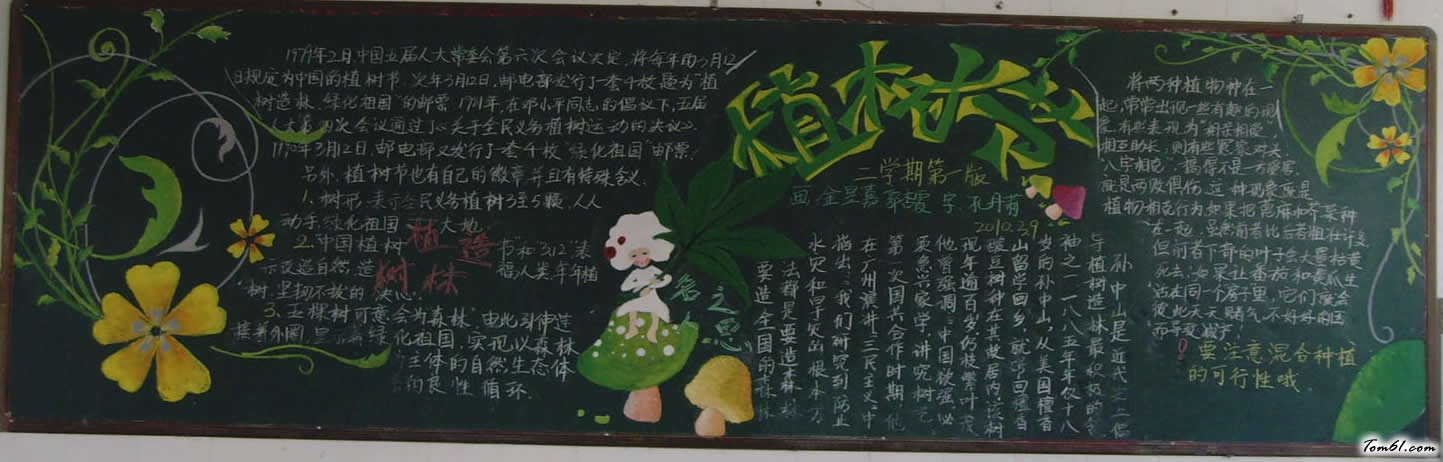 1979年2月,中国五届人大常委会第六次会议决定,将每年的3月12
日规定为中国的植树节。次年3月12日,邮电部发行了一套4枚题为"植
树造林,绿化祖国"的邮票。1981年,在邓小平同志的倡议下,五届
人大第四次会议通过了《关于全民义务植树运动的决议》。
1990年3月12日,邮电部又发行了一套4枚"绿化祖国"邮票。
另外,植树节也有自己的徽章并且有特殊含义。
1.树形,表示全民义务植树3至5颗,人人
动手,绿化祖国大地。
2.中国植树节"和"3.12"表
示改造自然,造福人类,年年植
树,坚韧不拔的决心。
植造
树林
3.五棵树可意会为"森林",由此引伸造
接着外圈,显示绿化祖国,实现以森林
为主体的自然生态体
的良性循环。
植树节
二学期第一版
画:金昱嘉 郭 字:孔丹有
2010.3.9
名人之思
孙中山是近代史上倡
导植树造林最积极的
袖之一。一八八五年年仅十八
岁的孙中山,从美国檀香
山留学回乡,就带回檀香
酸豆树种在其故居内,该树
现年逾百岁仍枝繁叶茂
他曾强调:中国欲强必
须急兴家学,讲究树艺。
第一次国共合作时期,他
在广州演讲"三民主义"中
指出:"我们研究到防止
水灾和旱灾的根本方
法都是要造森林,
要造全国的森林
将两种植物种在一
起,常常出现一些有趣的现
象,有些表现为"相亲相爱",
相互助长,则有些冤家对头,
"八字相克",搞得不是一方受害,
就是两败俱伤,这种现象就是
植物相克行为。如果把蓖麻和芥菜种
在一起,虽然前者比后者粗壮许多
但前者下部的叶子会大量枯黄
死去;如果让番茄和黄瓜生
活在同一个房子里,它们就会
彼此天天赌气,不好好的因
而导致减产!
!要注意混合种植
的可行性哦.
Tom61.com